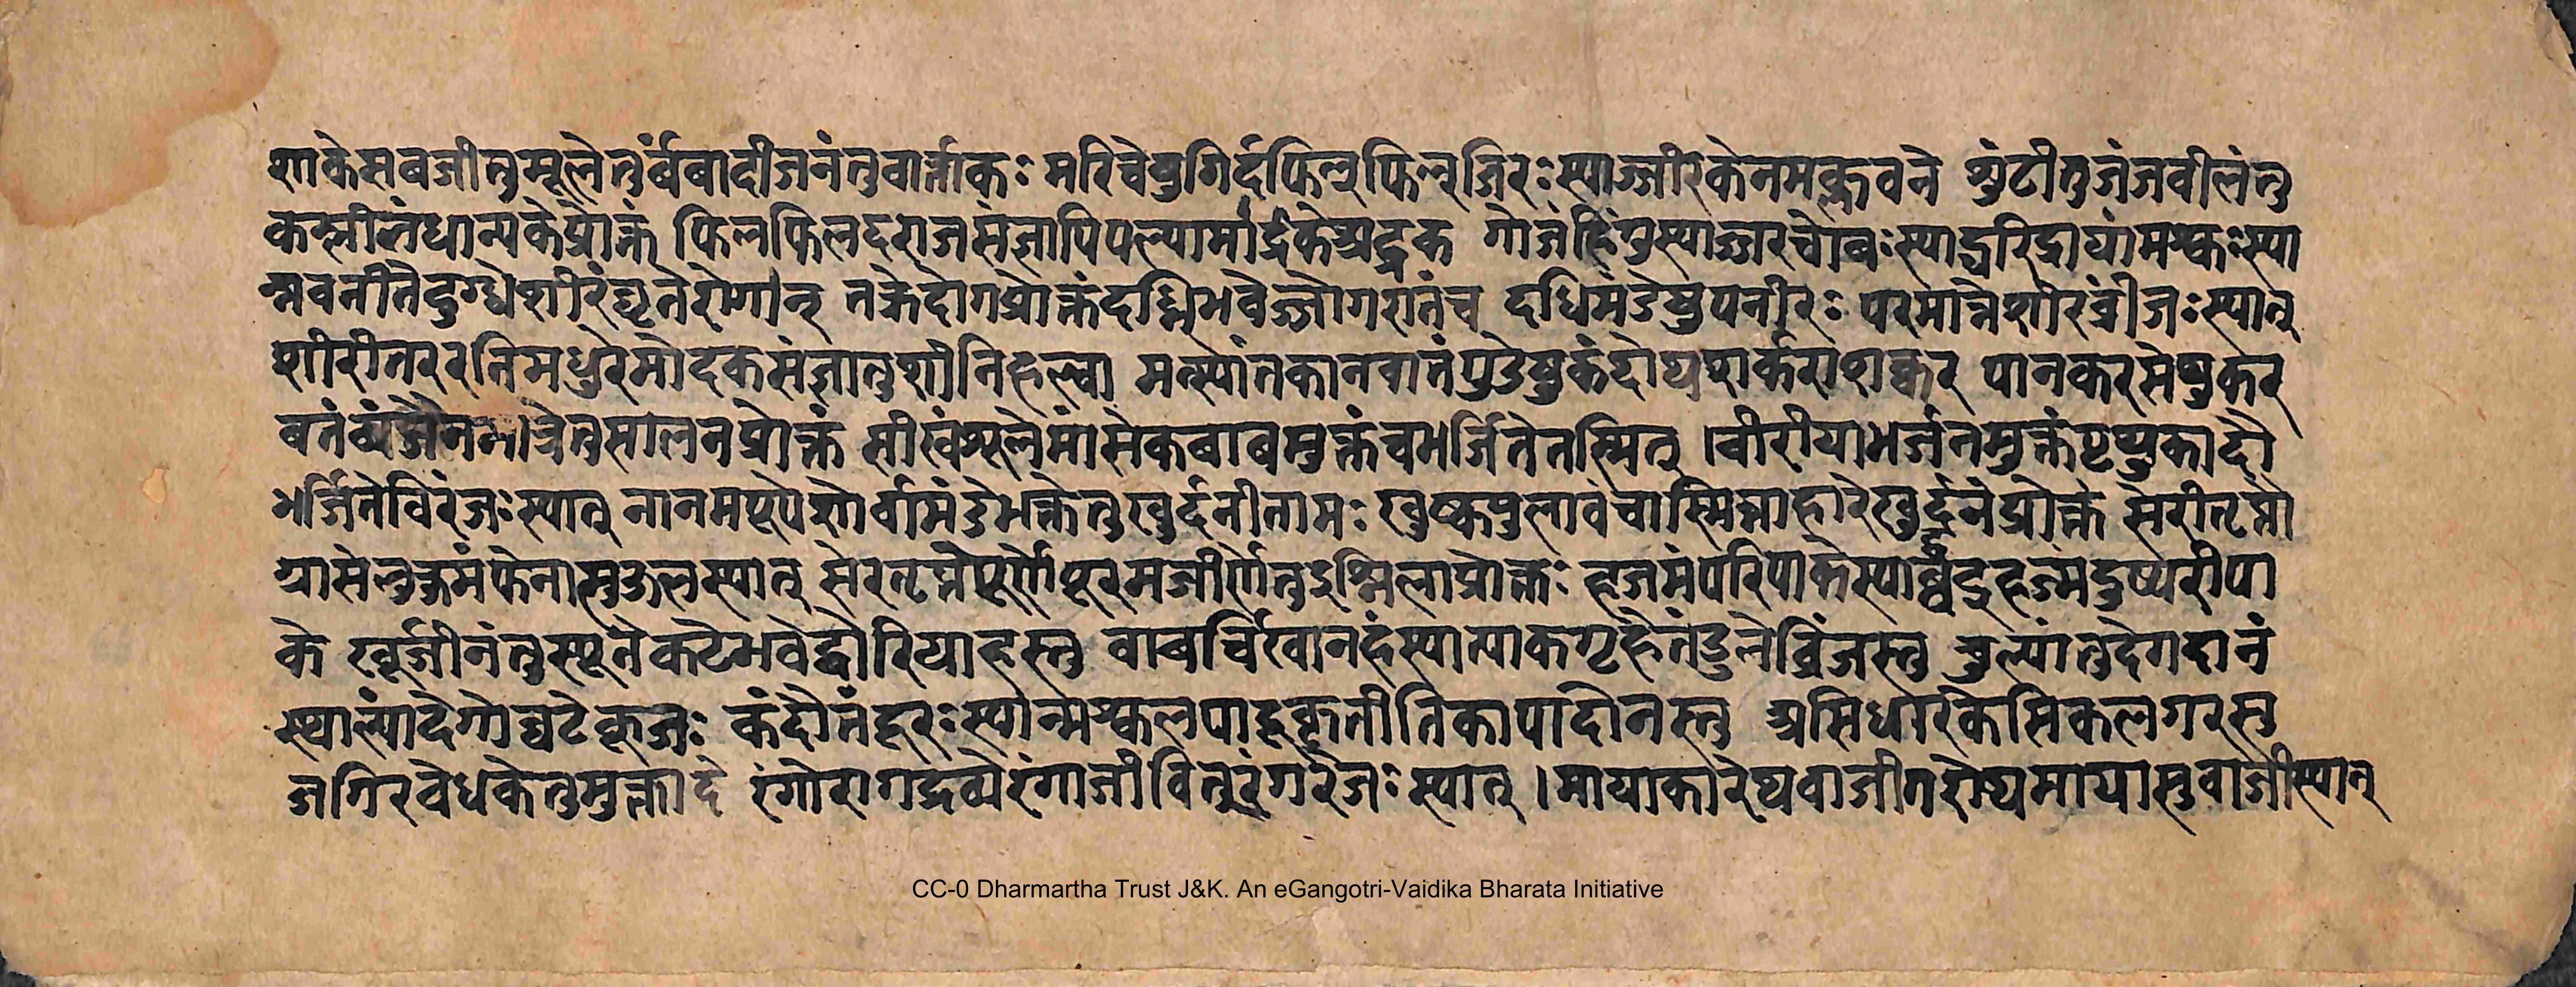 शाकेसबजीतुमूलेतुर्बंबादीजनंतुवार्त्ताकः मरिचेषुगिर्दफिल्फिल्जिरःस्याज्जीरकेनमक्लवने शुंटीतुजंजवीलंतु
कस्नीतंधान्यकेप्रोक्तं फिलफिलदराजसंज्ञापिपल्यामार्द्रकेअद्रक गोजंहिंगुस्याज्जारचोबःस्याद्धरिद्रायांमश्कःस्या
न्नवनीतेदुग्धेशीरंघृतेरोगान् तक्रेदोगप्रोक्तंदध्निभवेज्जोगरातंच दधिमंडेषुपनीरः परमान्नेशीरंब्रीजःस्यात्
शीरीतररनिमधुरेमोदकसंज्ञातुशीनिहल्वा मत्स्यांतकानवातंगुडेषुकंदोथशर्कराशक्कर पानकरसेषुकर
बतंव्यंजनेनान्नेतुसालनप्रोक्तं सीखंशूलेमांसेकबाबमुक्तंचभर्जितेतस्मित् ।वीरीयाभर्जनमुक्तंपृथुकादौ
भर्जितेविरंजःस्यात् नानमपूपेशोर्वामंडेभक्तेतुखुर्दनीतामः खुष्कपुलावंचास्मिन्नाहारेखुर्दनंप्रोक्तं सेरीतृप्तौ
यासेलुक्मंफेनासुजलस्यात् सेरतृप्तेपूर्णेपूरमजीर्णेतुइम्तिलाप्रोक्तः हजमंपरिपाकेस्याद्बदुहज्मंदुष्परीपा
के खूर्जीनंतुस्यूतेकटेभवेद्बोरियाहस्तु वाबर्चिखानहंस्यात्पाकगृहेतंडुलेब्रिंजस्तु चुल्यांतुदेगदानं
स्थाल्यांदेगोघटेकूजः कंदौतंदूरःस्यान्मश्कलपादूकृतीतिकापादीनस्तु असिधारकेसिकलगरस्तु
जगिरवेधकेतुमुक्तादे रंगोरागद्रव्येरंगाजीवितुरंगरेजःस्यात् ।मायाकारेष्यवाजीगरोथमायासुवाजीस्यात्
CC-0 Dharmartha Trust J&K. An eGangotri-Vaidika Bharata Initiative